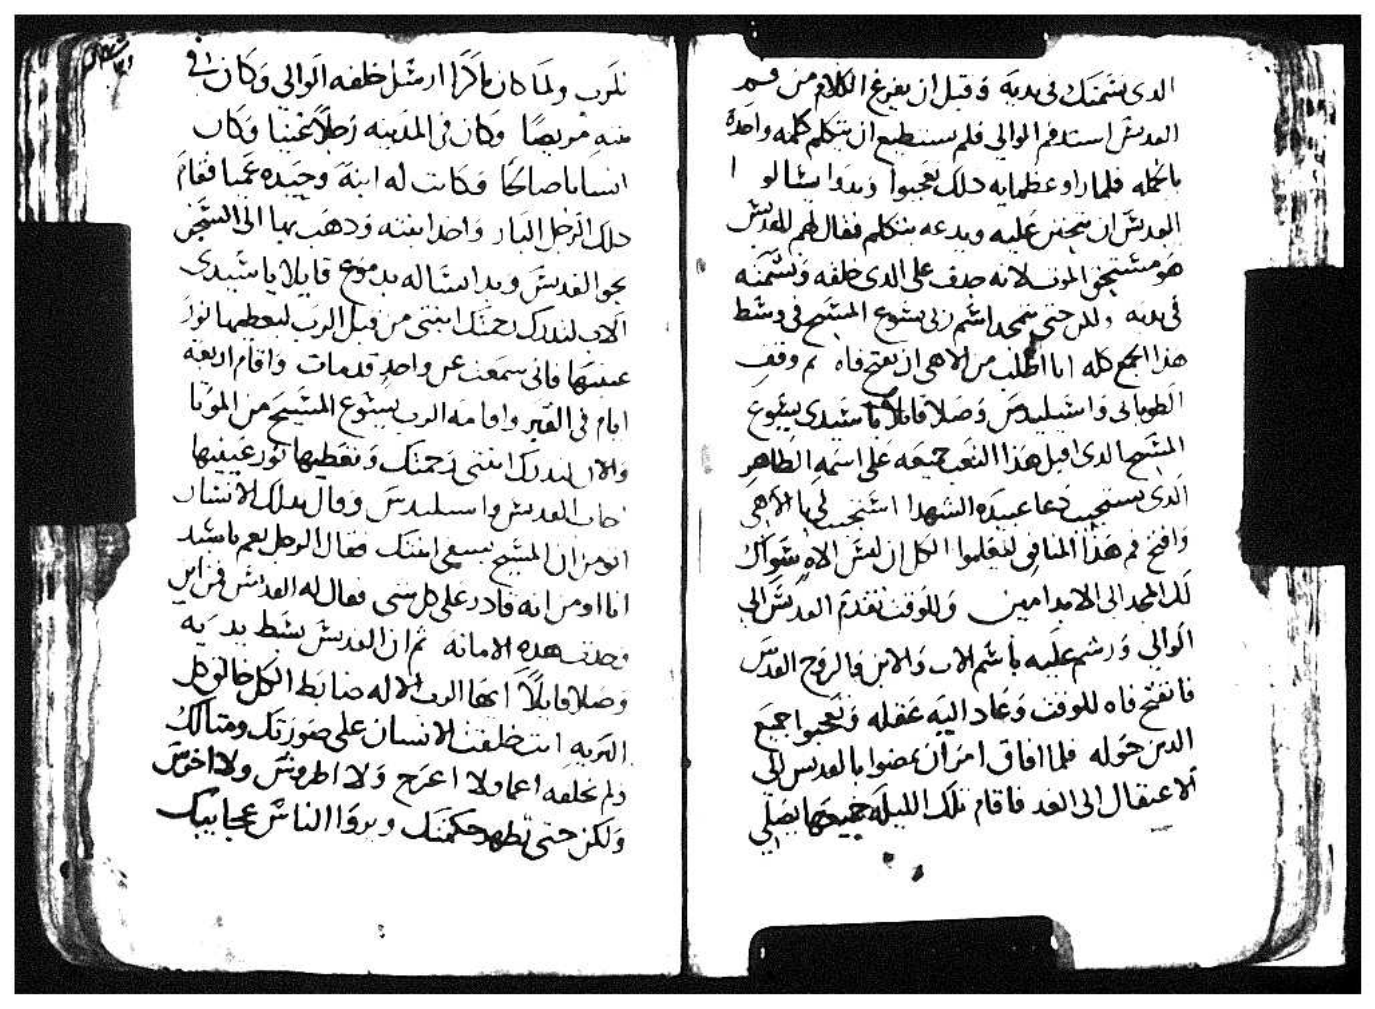 الدى نشمتك فى يديه وقبل ان يفرغ الكلام من فم
القديس استد فم الوالي فلم يستطيع ان يتكلم كلمه واحدة
بالجمله فلما راو عظمايه دلك تعجبوا وبدوا يسالو ا
القديس ان يتحنن عليه ويدعه يتكلم فقال لهم القديس
هو مستحق الموت لانه جدف على الدى خلقه ونسمته
فى يديه ولكن حتى يتمجد اسم ربى يسوع المسيح فى وسط
هذا الجمع كله انا اطلب من الاهى ان يفتح فاه ثم وقف
الطوبانى واسيليدس وصلا قايلا يا سيدى يسوع
المسيح الدى اقبل هذا التعب جميعه على اسمه الطاهر
الدى يستجيب دعا عبيده الشهدا استجيب لى يا الاهى
وافتح فم هذا المنافق ليعلموا الكل ان ليس الاه سواك
لك المجد الى الابد امين وللوقت تقدم القديس الى
الوالي ورشم عليه باسم الاب والابن والروح القدس
فانفتح فاه للوقت وعاد اليه عقله وتعجبوا جميع
الدين حوله فلما افاق امر ان يمضوا بالقديس الى
الاعتقال الى الغد فاقام تلك الليله جميعها يصلي
للرب ولما كان باكرا ارسل خلفه الوالي وكان فى
مدينه مريضا وكان فى المدينه رجلا غنيا وكان
انسانا صالحا وكانت له ابنة وحيده عميا فقام
دلك الرجل البار واخد ابنته ودهب بها الى السجن
نحو القديس وبدا يساله بدموع قايلا يا سيدى
الاب لتدرك رحمتك ابنتى من قبل الرب ليعطيها نور
عينيها فانى سمعت عن واحد قد مات واقام اربعه
ايام فى القبر واقامه الرب يسوع المسيح من الموتا
والان لتدرك ابنتى رحمتك وتعطيها نور عينيها
اجاب القديس واسيليدس وقال لدلك الانسان
اتومن ان المسيح يشفى ابنتك فقال الرجل نعم يا سيد
انا اومن انه قادر على كل شى فقال له القديس فمن اين
وجدت هده الامانه ثم ان القديس بسط يديه
وصلا قايلاً ايها الرب الاله ضابط الكل خالق كل
البريه انت خلقت الانسان على صورتك ومتالك
ولم تخلقه اعما ولا اعرج ولا اطروش ولا اخرس
ولكن حتى تظهر حكمتك ويروا الناس عجايبك